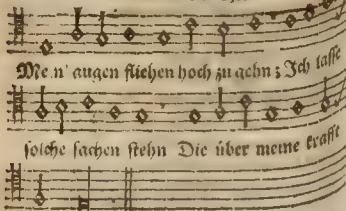 Mein' augen fliehen hoch zu gehn; Ich lasse
solche sachen stehn Die über meine krafft